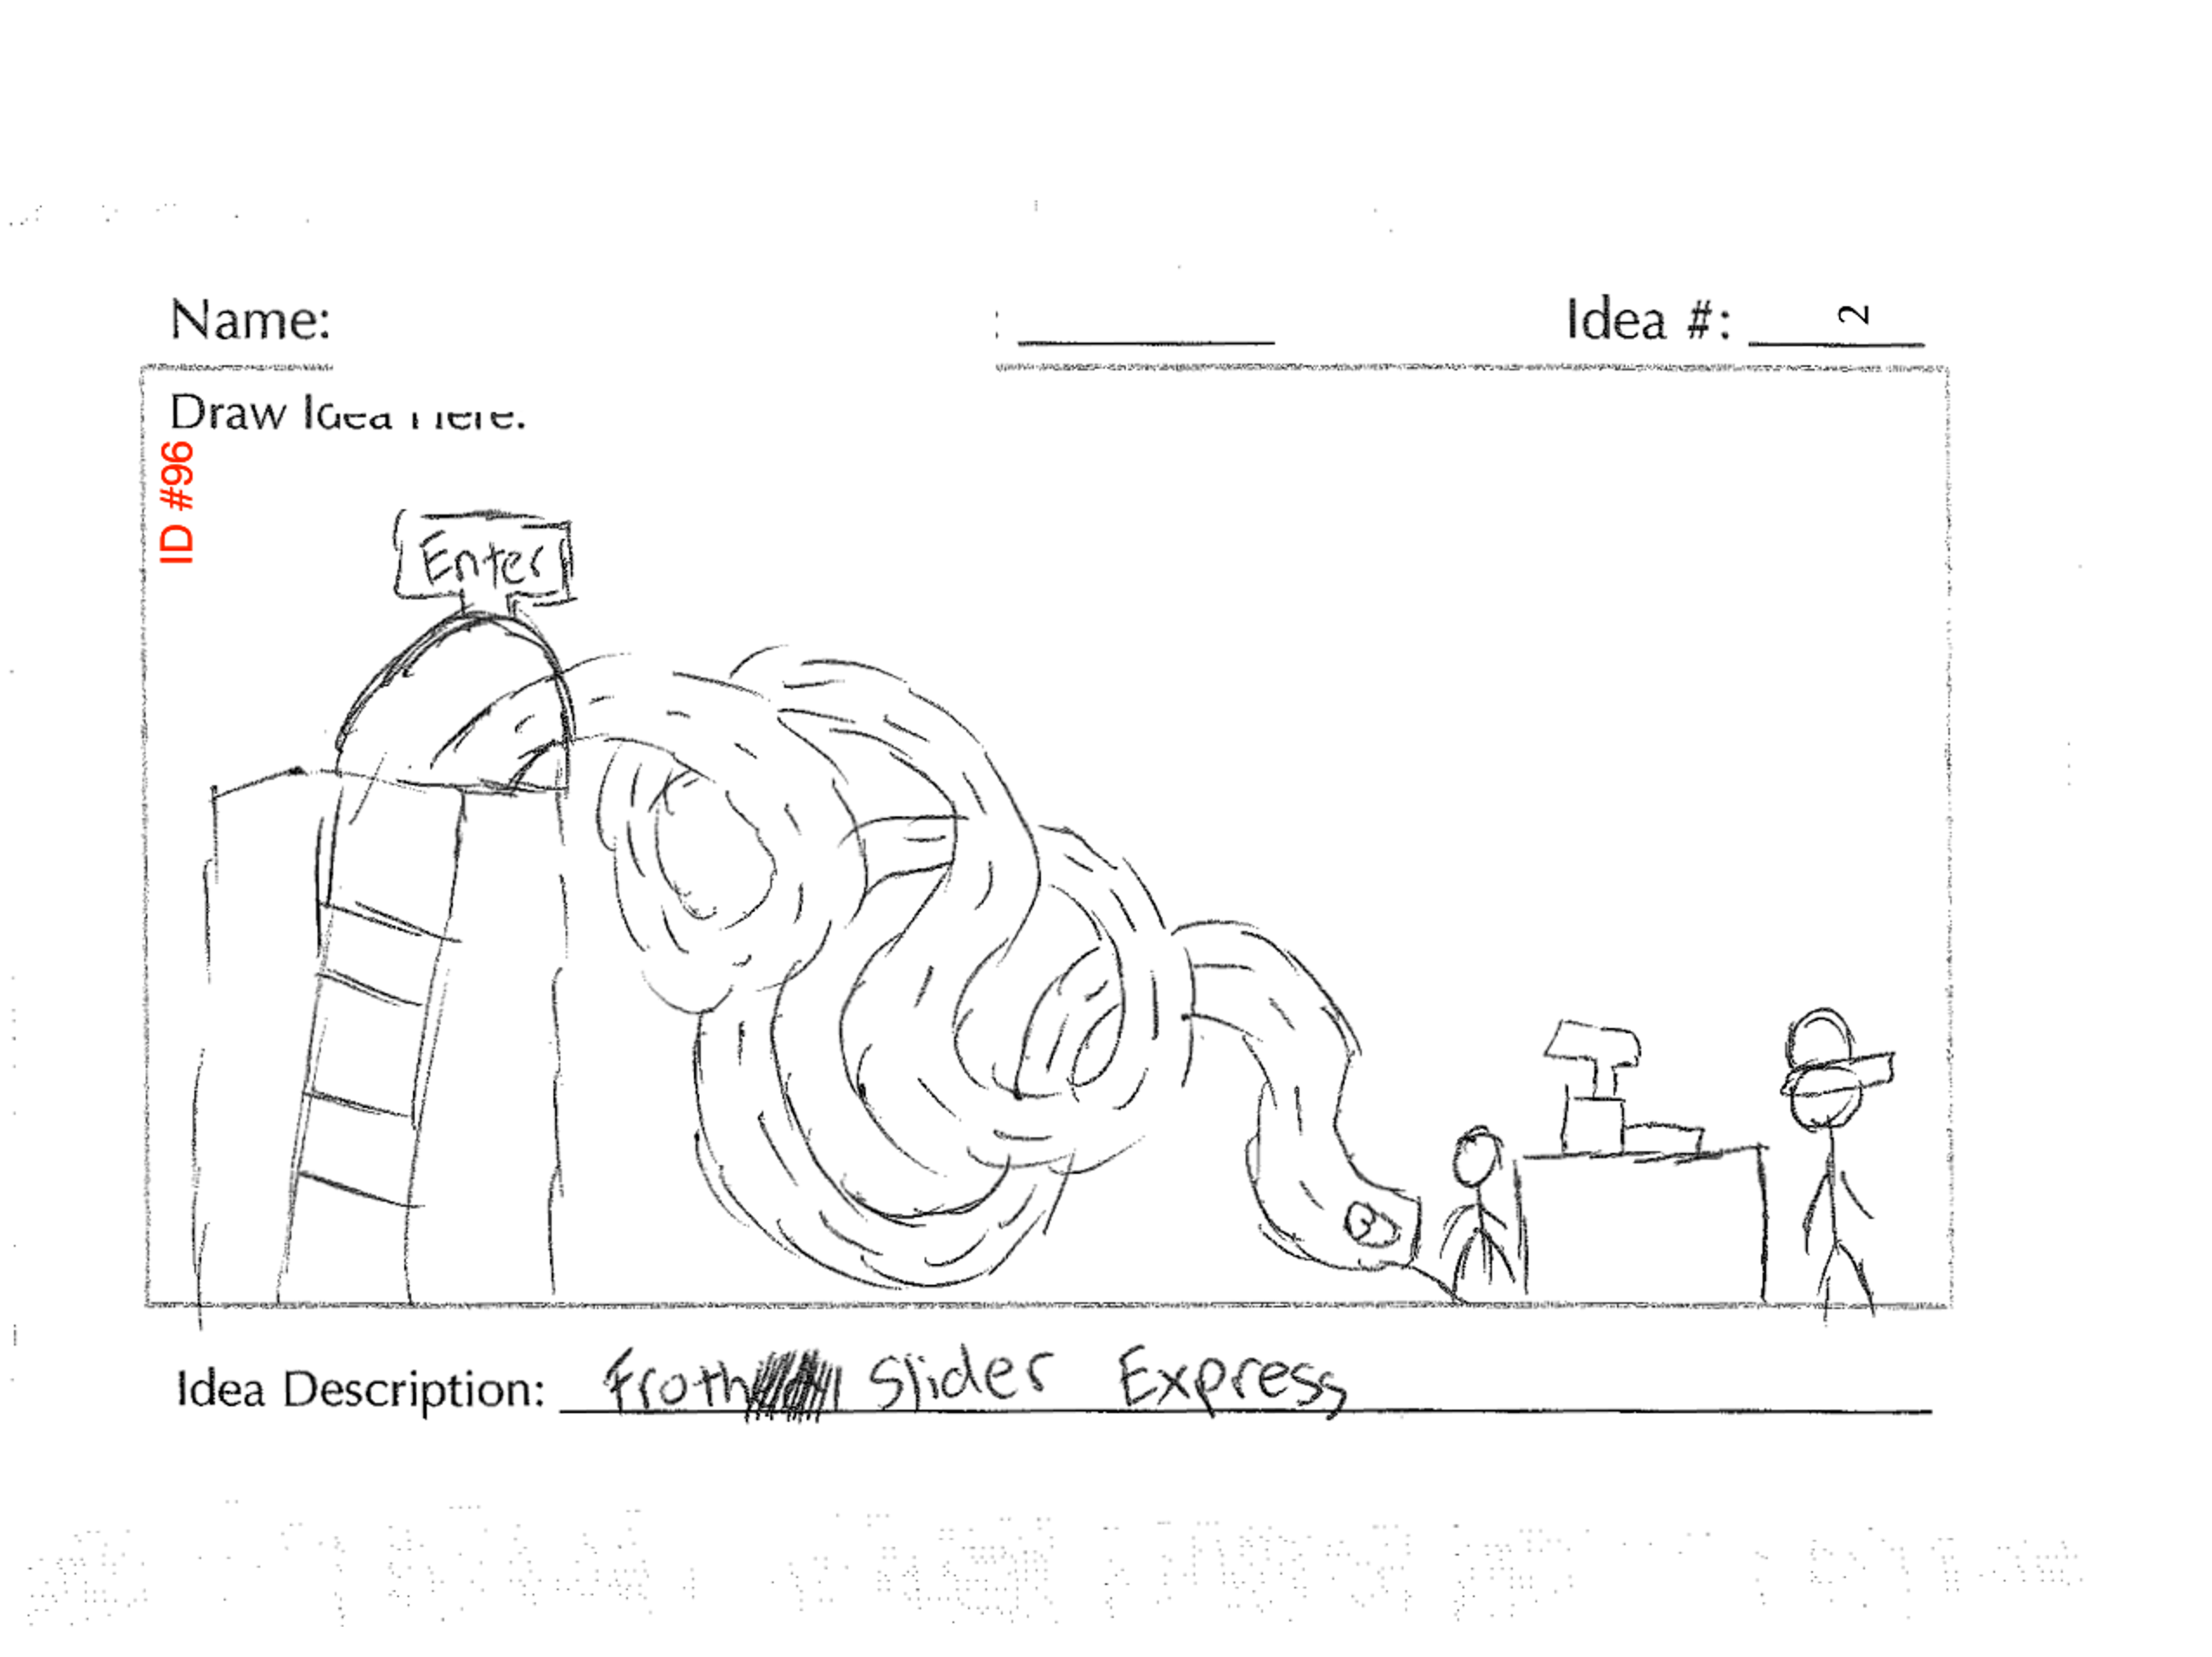 Name:
: Idea #: 2
Draw Idea Here:
ID #96
Enter
3
Idea Description: Froth Slider Express